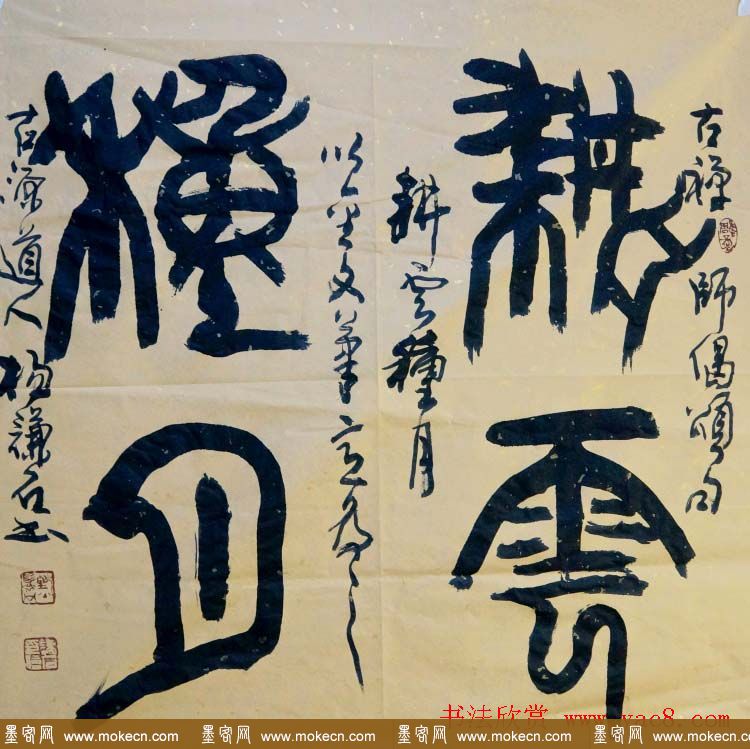 古禅师偈颂句
耕雲
耕雲種月
以金文筆意為之
種月
古源道人楊謙石書
书法欣赏 www.yac8.com
墨客网 www.mokecn.com 墨客网 www.mokecn.com 墨客网 www.mokecn.com 墨客网 www.mokecn.com